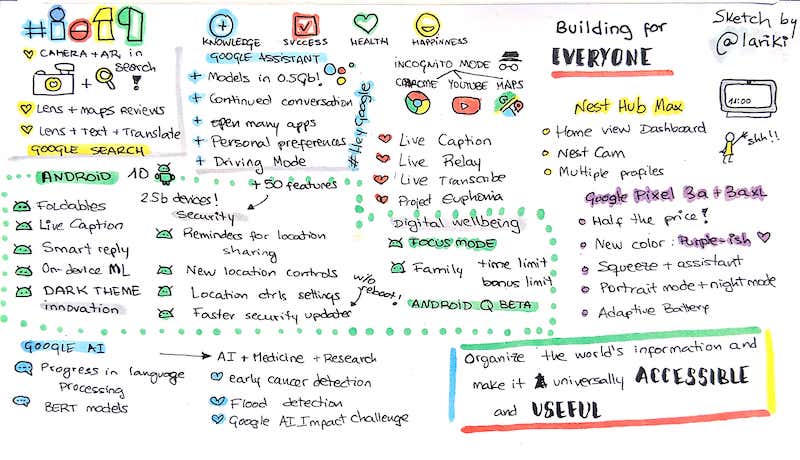 #io19
KNOWLEDGE
SUCCESS
HEALTH
HAPPINNESS
Building for
EVERYONE
Sketch by
@lariki
CAMERA + AR in
search
+
Lens + maps Reviews
Lens + Text + Translate
GOOGLE SEARCH
GOOGLE ASSISTANT
+ Models in 0.5Gb!
+ Continued conversation
+ open many apps
+ Personal preferences
+ Driving Mode
#HeyGoogle
INCOGNITO MODE
CHROME YOUTUBE MAPS
Live Caption
Live Relay
Live Transcribe
Project Euphonia
Nest Hub Max
Home view Dashboard
Nest Cam
Multiple profiles
11:00
shh!!
Google Pixel 3a + 3axl
Half the price!
New color: Purple-ish
Squeeze + assistant
Portrait mode + night mode
Adaptive Battery
ANDROID 10
2.5b devices!
+ 50 features
Foldables
Live Caption
Smart reply
On-device ML
DARK THEME
innovation
security
Reminders for location
sharing
New location controls
Location ctrls settings
Faster security updater
w/o
reboot!
Digital wellbeing
FOCUS MODE
Family time limit
bonus limit
ANDROID Q BETA
GOOGLE AI
Progress in language
processing
BERT models
AI + Medicine + Research
early cancer detection
Flood detection
Google AI Impact challenge
Organize the world's information and
make it universally ACCESSIBLE
and USEFUL